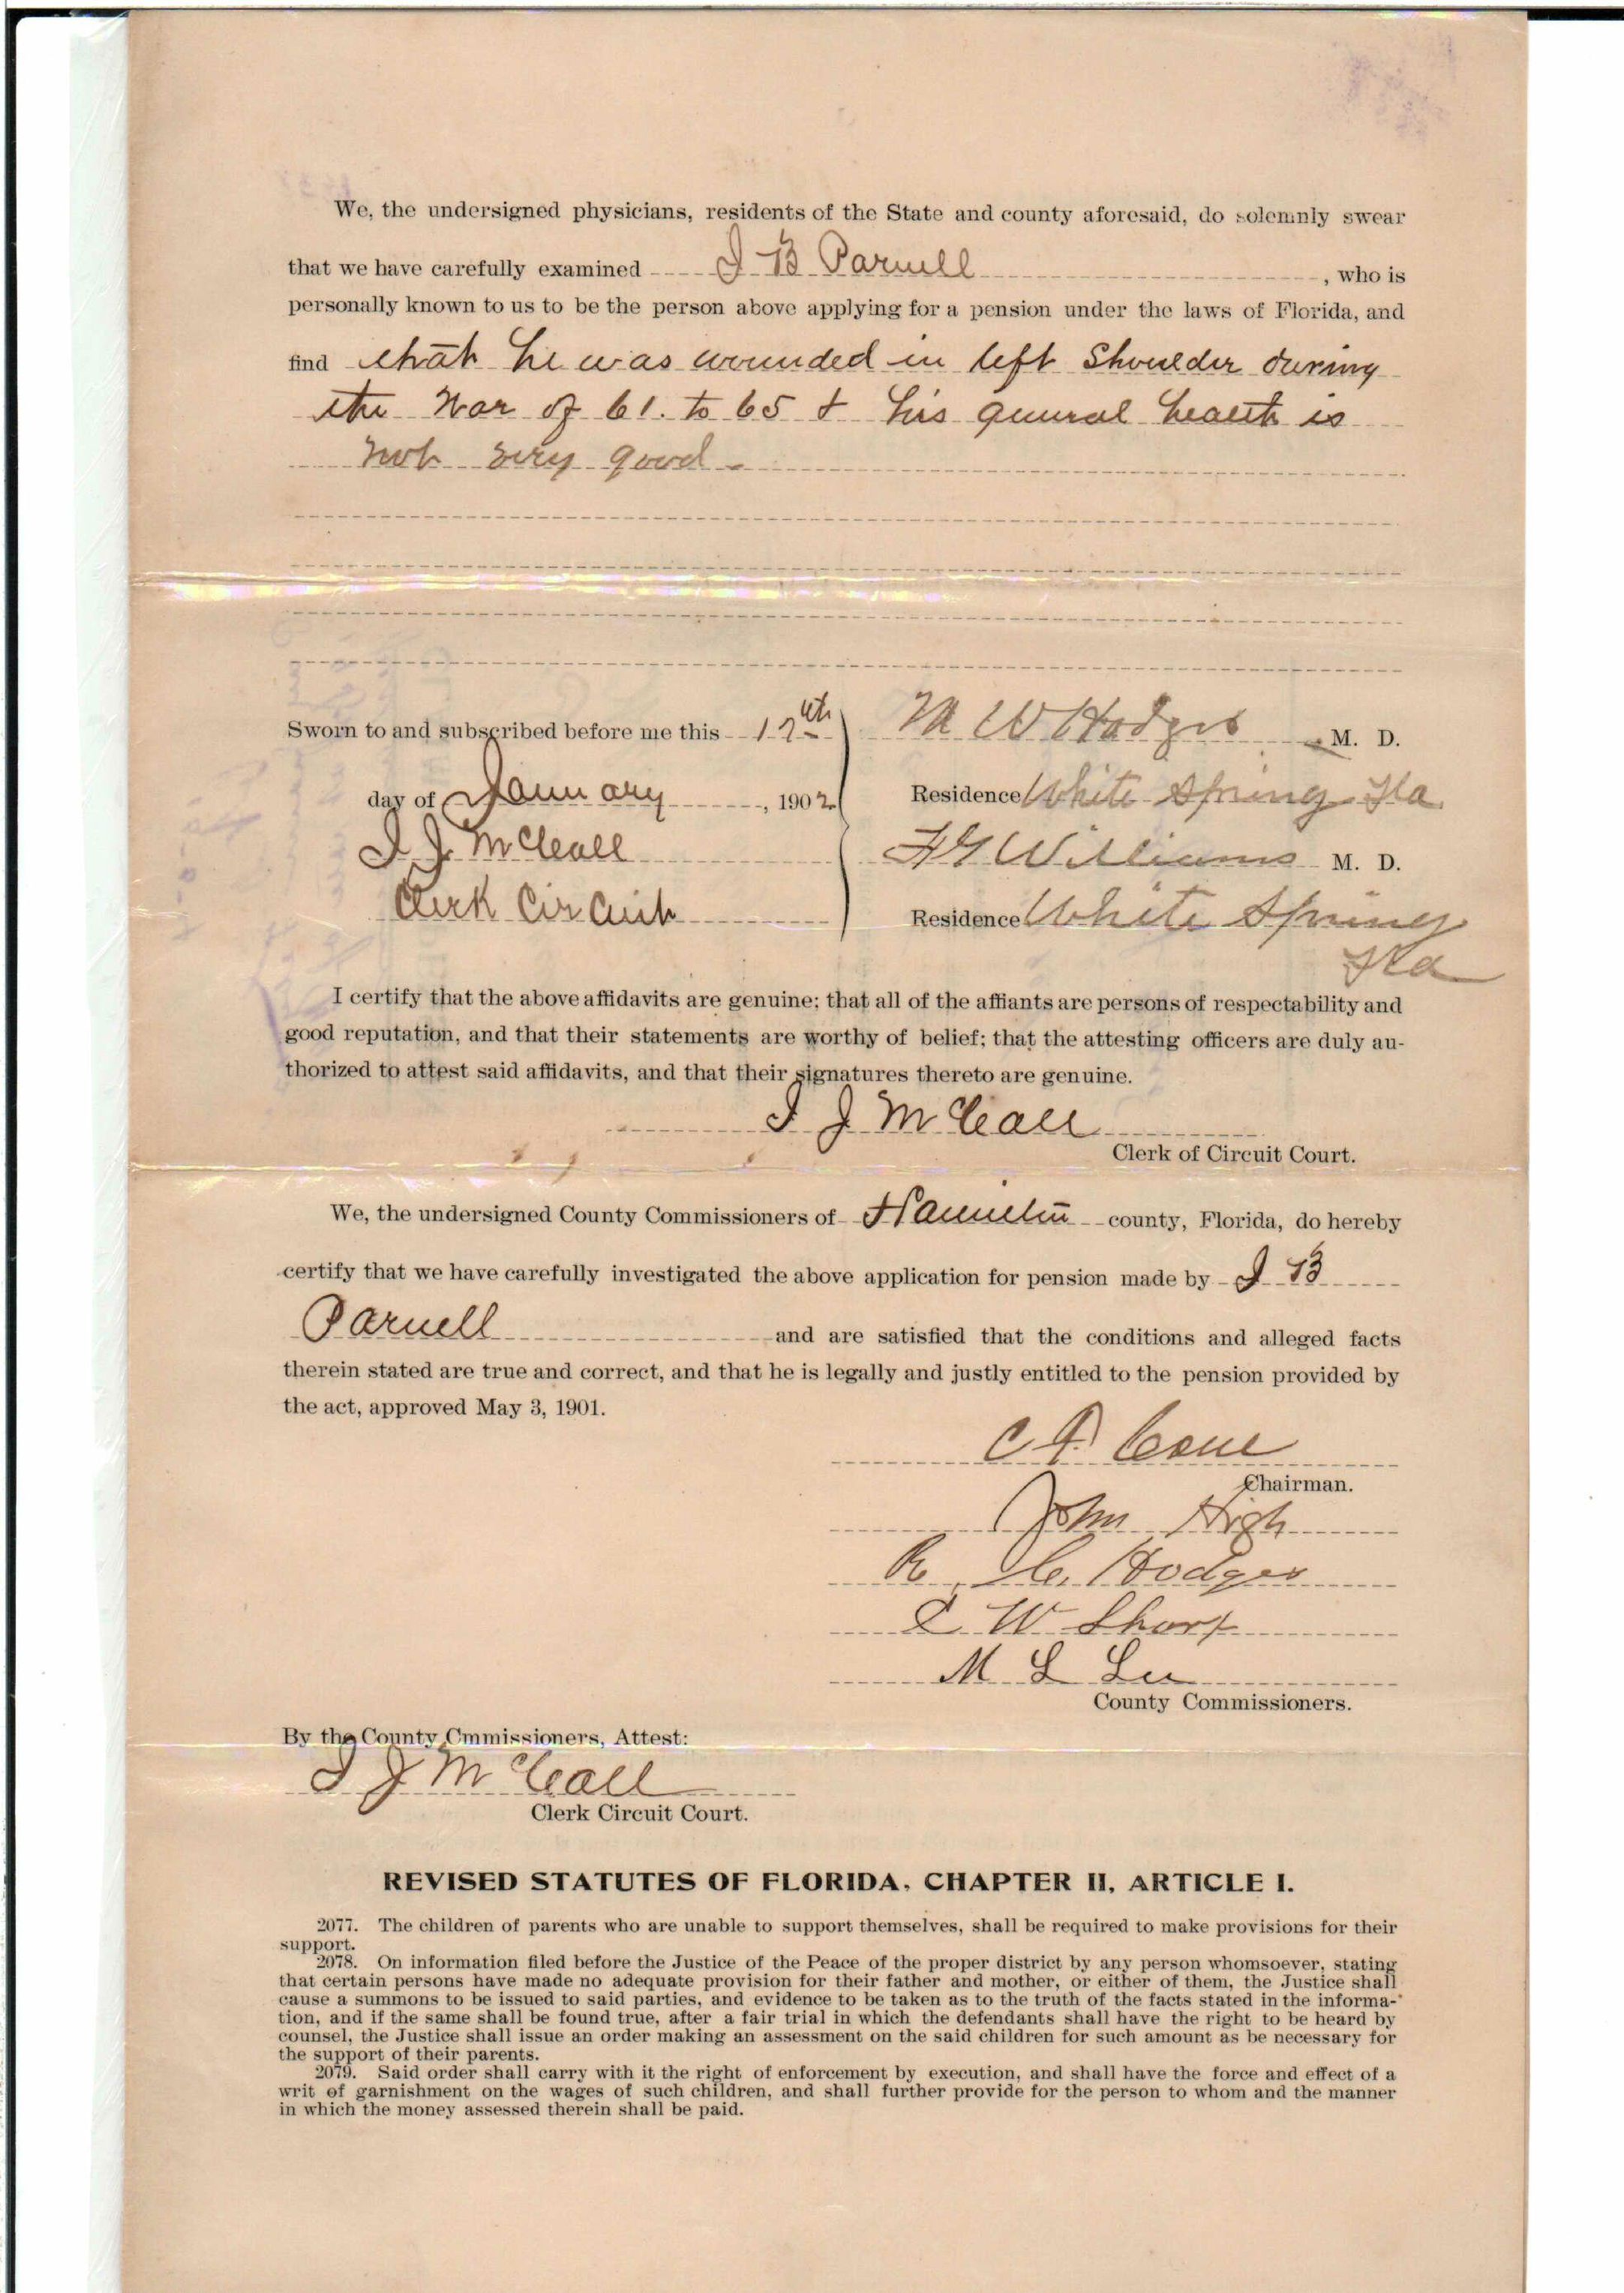 We, the undersigned physicians, residents of the State and county aforesaid, do solemnly swear
that we have carefully examined J B Parnell, who is
personally known to us to be the person above applying for a pension under the laws of Florida, and
find that he was wounded in left Shoulder during
the War of 61. to 65 & his general health is
not very good.
Sworn to and subscribed before me this 17th M W Hodges M. D.
day of January, 1902 Residence White Spring Fla.
J. J. McCall Williams M. D.
Clerk Circuit Residence White Spring
Fla
I certify that the above affidavits are genuine; that all of the affiants are persons of respectability and
good reputation, and that their statements are worthy of belief; that the attesting officers are duly au-
thorized to attest said affidavits, and that their signatures thereto are genuine.
J J McCall
Clerk of Circuit Court.
We, the undersigned County Commissioners of Hamilton county, Florida, do hereby
certify that we have carefully investigated the above application for pension made by J B
Parnell and are satisfied that the conditions and alleged facts
therein stated are true and correct, and that he is legally and justly entitled to the pension provided by
the act, approved May 3, 1901.
Cone
Chairman.
John High
Hodges
W Sharp
M L Lee
County Commissioners.
By the County Cmmissioners, Attest:
J J McCall
Clerk Circuit Court.
REVISED STATUTES OF FLORIDA, CHAPTER II, ARTICLE I.
2077. The children of parents who are unable to support themselves, shall be required to make provisions for their
support.
2078. On information filed before the Justice of the Peace of the proper district by any person whomsoever, stating
that certain persons have made no adequate provision for their father and mother, or either of them, the Justice shall
cause a summons to be issued to said parties, and evidence to be taken as to the truth of the facts stated in the informa-
tion, and if the same shall be found true, after a fair trial in which the defendants shall have the right to be heard by
counsel, the Justice shall issue an order making an assessment on the said children for such amount as be necessary for
the support of their parents.
2079. Said order shall carry with it the right of enforcement by execution, and shall have the force and effect of a
writ of garnishment on the wages of such children, and shall further provide for the person to whom and the manner
in which the money assessed therein shall be paid.